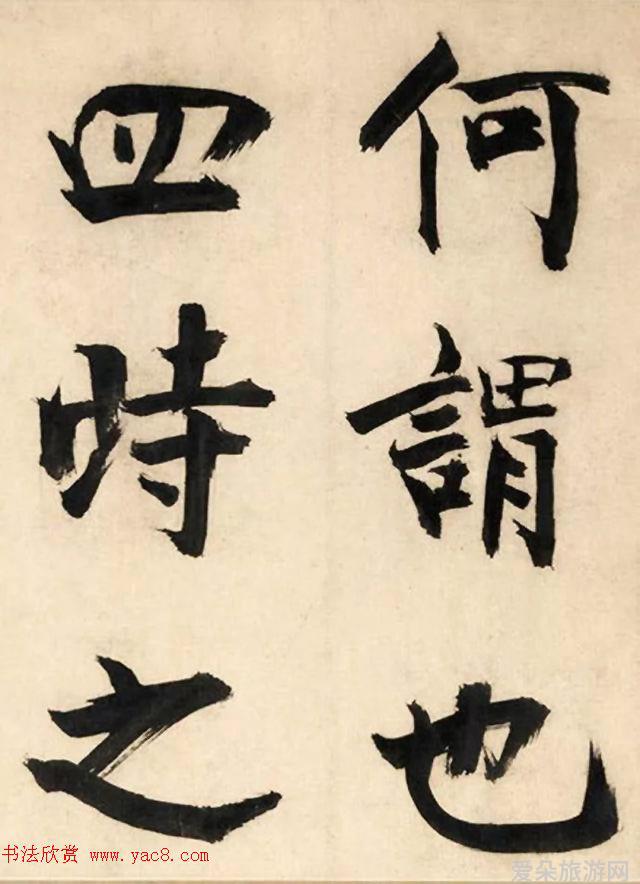 何謂也
四時之
书法欣赏 www.yac8.com
爱朵旅游网